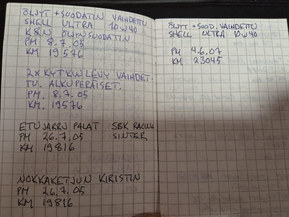 ÖLJYT + SUODATIN VAIHDETTU
SHELL ULTRA 10W40
K&N ÖLJYNSUODATIN
PM 8.7.05
KM 19576
2x KYTKINLEVY VAIHDET-
TU. ALKUPERÄISET.
PM. 8.7.05
KM. 19576
ETUJARRU PALAT SBK
SINTER
PM 26.7.05
KM 19816
NOKKAKETJUN KIRISTIN
PM 26.7.05
KM 19816
ÖLJYT + SUOD. VAIHDETTU
SHELL ULTRA 10W40
PM 4.6.07
KM 23045